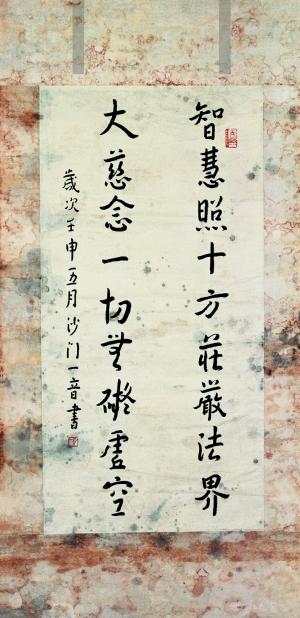 智慧照十方莊嚴法界
大慈念一切無礙虛空
歲次壬申五月沙门一音書